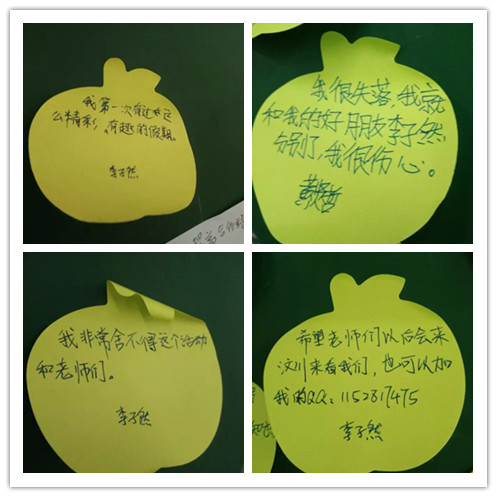 我第一次有过这
么精彩,有趣的假期。
李子然
我很失落,我就
和我的好朋友李子然
分别了,我很伤心。
我非常舍不得这个活动
和老师们。
李子然
希望老师们以后会来
汶川来看我们,也可以加
我的QQ:1152817475
李子然